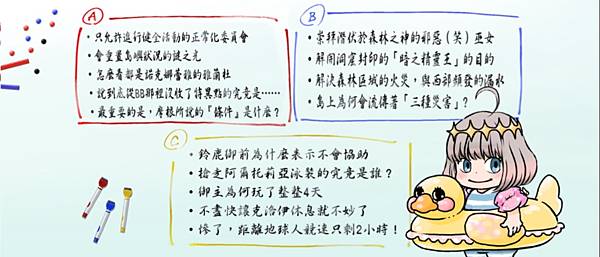 A
・只允許進行健全活動的正常化委員會
・會重置島嶼狀況的謎之光
・怎麼看都是諾克娜蕾雅的雅蘭杜
・說到底從BB那裡沒收了特異點的究竟是……
・最重要的是，摩根所說的「條件」是什麼？
B
・崇拜潛伏於森林之神的邪惡（笑）巫女
・解開洞窟封印的「暗之精靈王」的目的
・解決森林區域的火災，與西部頻發的漏水
・島上為何會流傳著「三種災害」？
C
・鈴鹿御前為什麼表示不會協助
・搶走阿爾托莉亞泳裝的究竟是誰？
・御主為何玩了整整4天
・不盡快讓克洛伊休息就不妙了
・慘了，距離地球人競速只剩2小時！